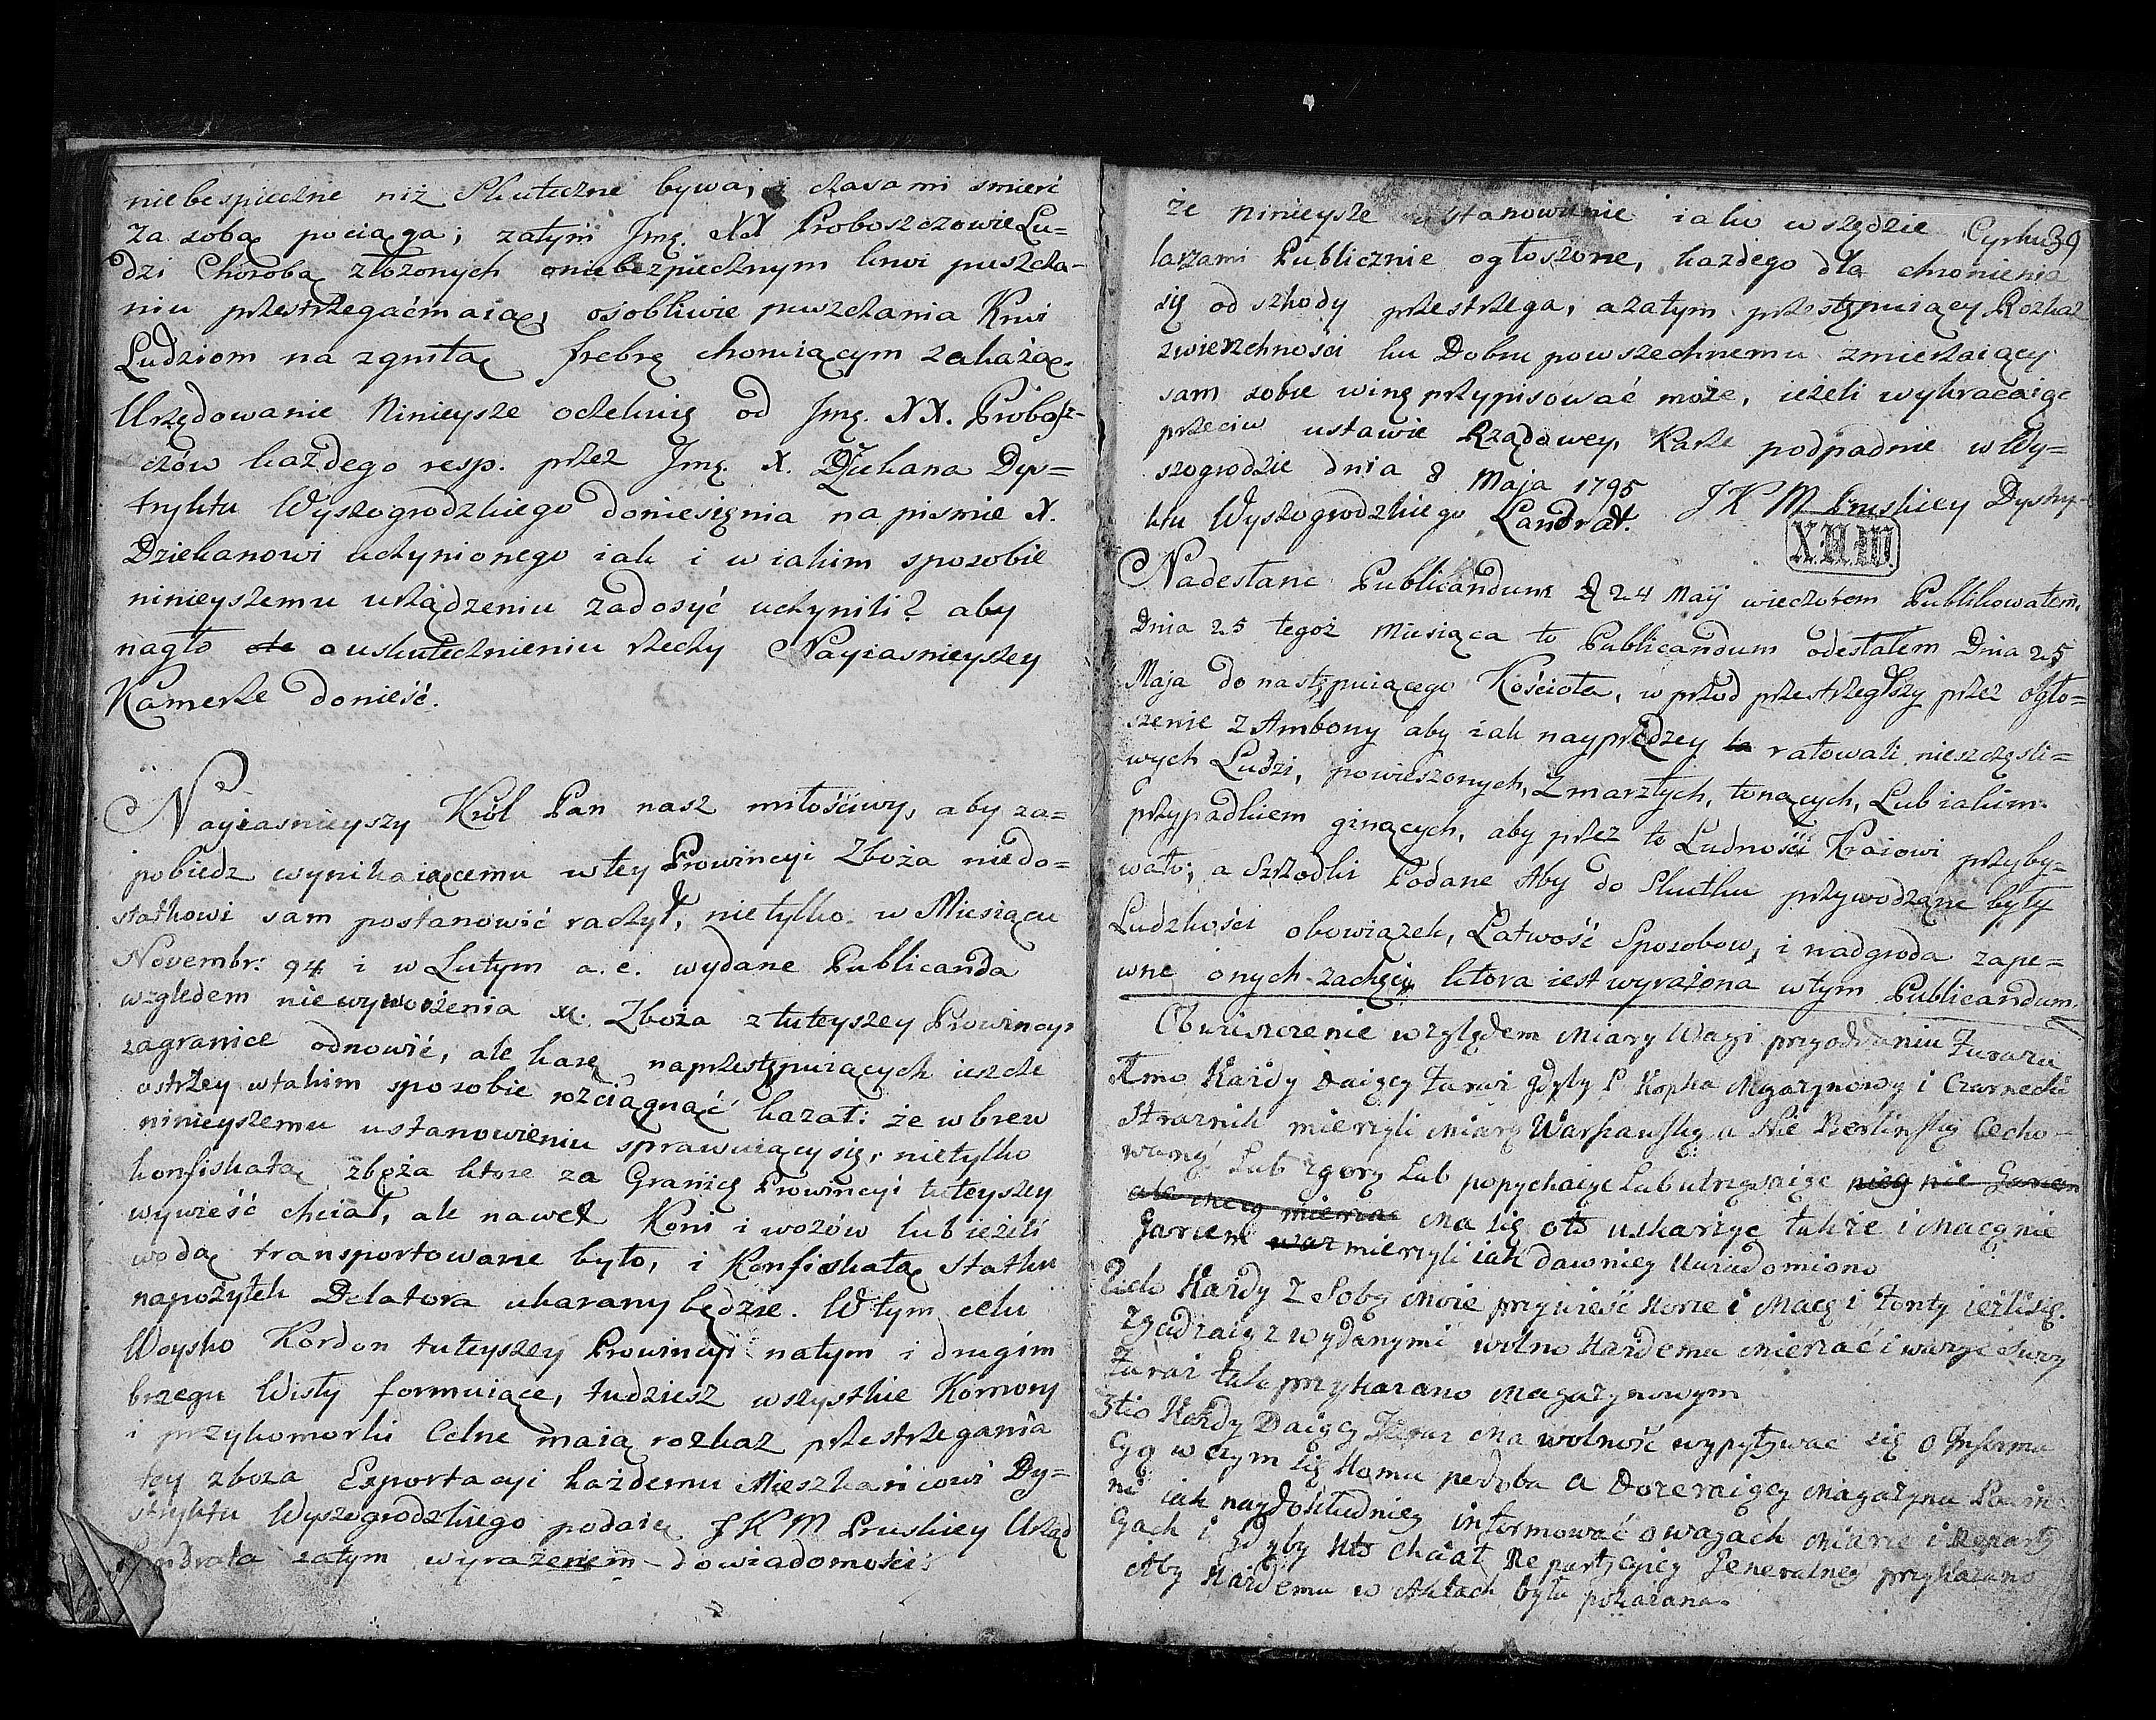 niebespieczne niż Skuteczne bywa, i czasami smierć
za sobą pociąga; zatym Jmę. XX Proboszczowie Lu=
dzi Chorobą złożonych o niebezpiecznym krwi puszcza-
niu przestrzegać maią, osobliwie puszczania Krwi
Ludziom na zgniłą febrę choruiącym zakażą.
Urzędowanie Ninieysze oczekuię od Jmę. XX. Probosz-
czów każdego resp. przez Jmę. X. Dziekana Dys=
tryktu Wyszogrodzkiego doniesięnia na pismie X.
Dziekanowi uczynionego iak i w iakim sposobie
ninieyszemu urządzeniu zadosyć uczynili? aby
nagło o uskutecznieniu rzeczy Nayiasnieyszey
Kamerze donieść.
Nayiasnieyszy Król Pan nasz miłościwy, aby za=
pobiedz wynikaiącemu w tey Prowincyi Zboża niedo=
statkowi sam postanowić raczył, nie tylko w Miesiącu
Novembr: 94 i w Lutym a. c. wydane Publicanda
względem niewywożenia Zboża z tuteyszey Prowincyi
zagranice odnowić, ale karę na przestępuiących ieszcze
ostrzey w takim sposobie rozciągnąć kazał: że wbrew
ninieyszemu ustanowieniu sprawuiący się, nie tylko
konfiskatą zboża ktore za Granicę Prowincyi tuteyszey
wywieść chciał, ale nawet Koni i wozów lub ieżeli
wodą transportowane było, i Konfiskatą statku
na pożytek Delatora ukarany będzie. W tym celu
Woysko Kordon tuteyszey Prowincyi na tym i drugim
brzegu Wisły formuiące, tudziesz wszystkie Komory
i przykomorki Celne maią rozkaz przestrzegania
tey zboża Exportacyi każdemu Mieszkańcowi Dy=
stryktu Wyszogrodzkiego podaię J K M Pruskiey Urząd
Landrata zatym wyrażeniem do wiadomości:
że ninieysze ustanowienie iako wszędzie Cyrku 39
larzami Publicznie ogłoszone, każdego dla chronienia
się od szkody przestrzega, a zatym przestępuiący Rozkaz
zwierzchności ku Dobru powszechnemu zmierzaiący
sam sobie winę przypisować może, ieżeli wykraczaiąc
przeciw ustawie Rządowey, Karze podpadnie w Wy=
szogrodzie dnia 8 Maja 1795 J K M Pruskiey Dystry-
ktu Wyszogrodzkiego Landrat.
X.II.W.
Nadesłane Publicandum 24 Maÿ wieczorem Publikowałem.
Dnia 25 tegoż Miesiąca to Publicandum odesłałem Dnia 25
Maja do następuiącego Kościoła, w przod przestrzegłszy przez ogło=
szenie z Ambony aby iak nayprędzey ratowali nieszczęsli=
wych Ludzi, powieszonych, Zmarzłych, tonących, Lub iakim
przypadkiem ginących, aby przez to Ludność Kraiowi przyby=
wało; a Szrodki Podane Aby do Skutku przywodzane były
Ludzkości obowiązek, Łatwość Sposobow, i nadgroda zape=
wne onych zachęci ktora iest wyrażona w tym Publicandum.
Obwieszczenie względem Miary Wagi przy oddaniu Furażu
1mo Każdy Daiący Furaż gdyby P Kopka Magazynowy i Czarnecki
Strażnik mierzyli Miarą Warszawską a Nie Berlinską Cecho-
waną Lub zgory Lub popychaiąc Lub utrzęsaiąc nieg nie Garcem
ale chcą mierzać Ma się oto uskarżyc także i Macą nie
Garcem mierzyli iak dawniey Uwiadomiono
2do Każdy z Sobą Może przywieść Korze i Macę i Fonty ieżli się
zgadzaią z wydanymi wolno Każdemu Mierzać i ważyć Swoy
Furaż tak przykazano Magazynowym
3tio Każdy Daiący Furaż Ma wolność wypytywac się o Informa
cyą w czym się Komu podoba a Dozeraiący Magazynu Powin
ni iak naydokładniey informować o wagach Miarze i Reparty
cyach i gdyby kto chciał Repartycyiey Generalney przykazano
Aby Każdemu w Aktach była pokazana.